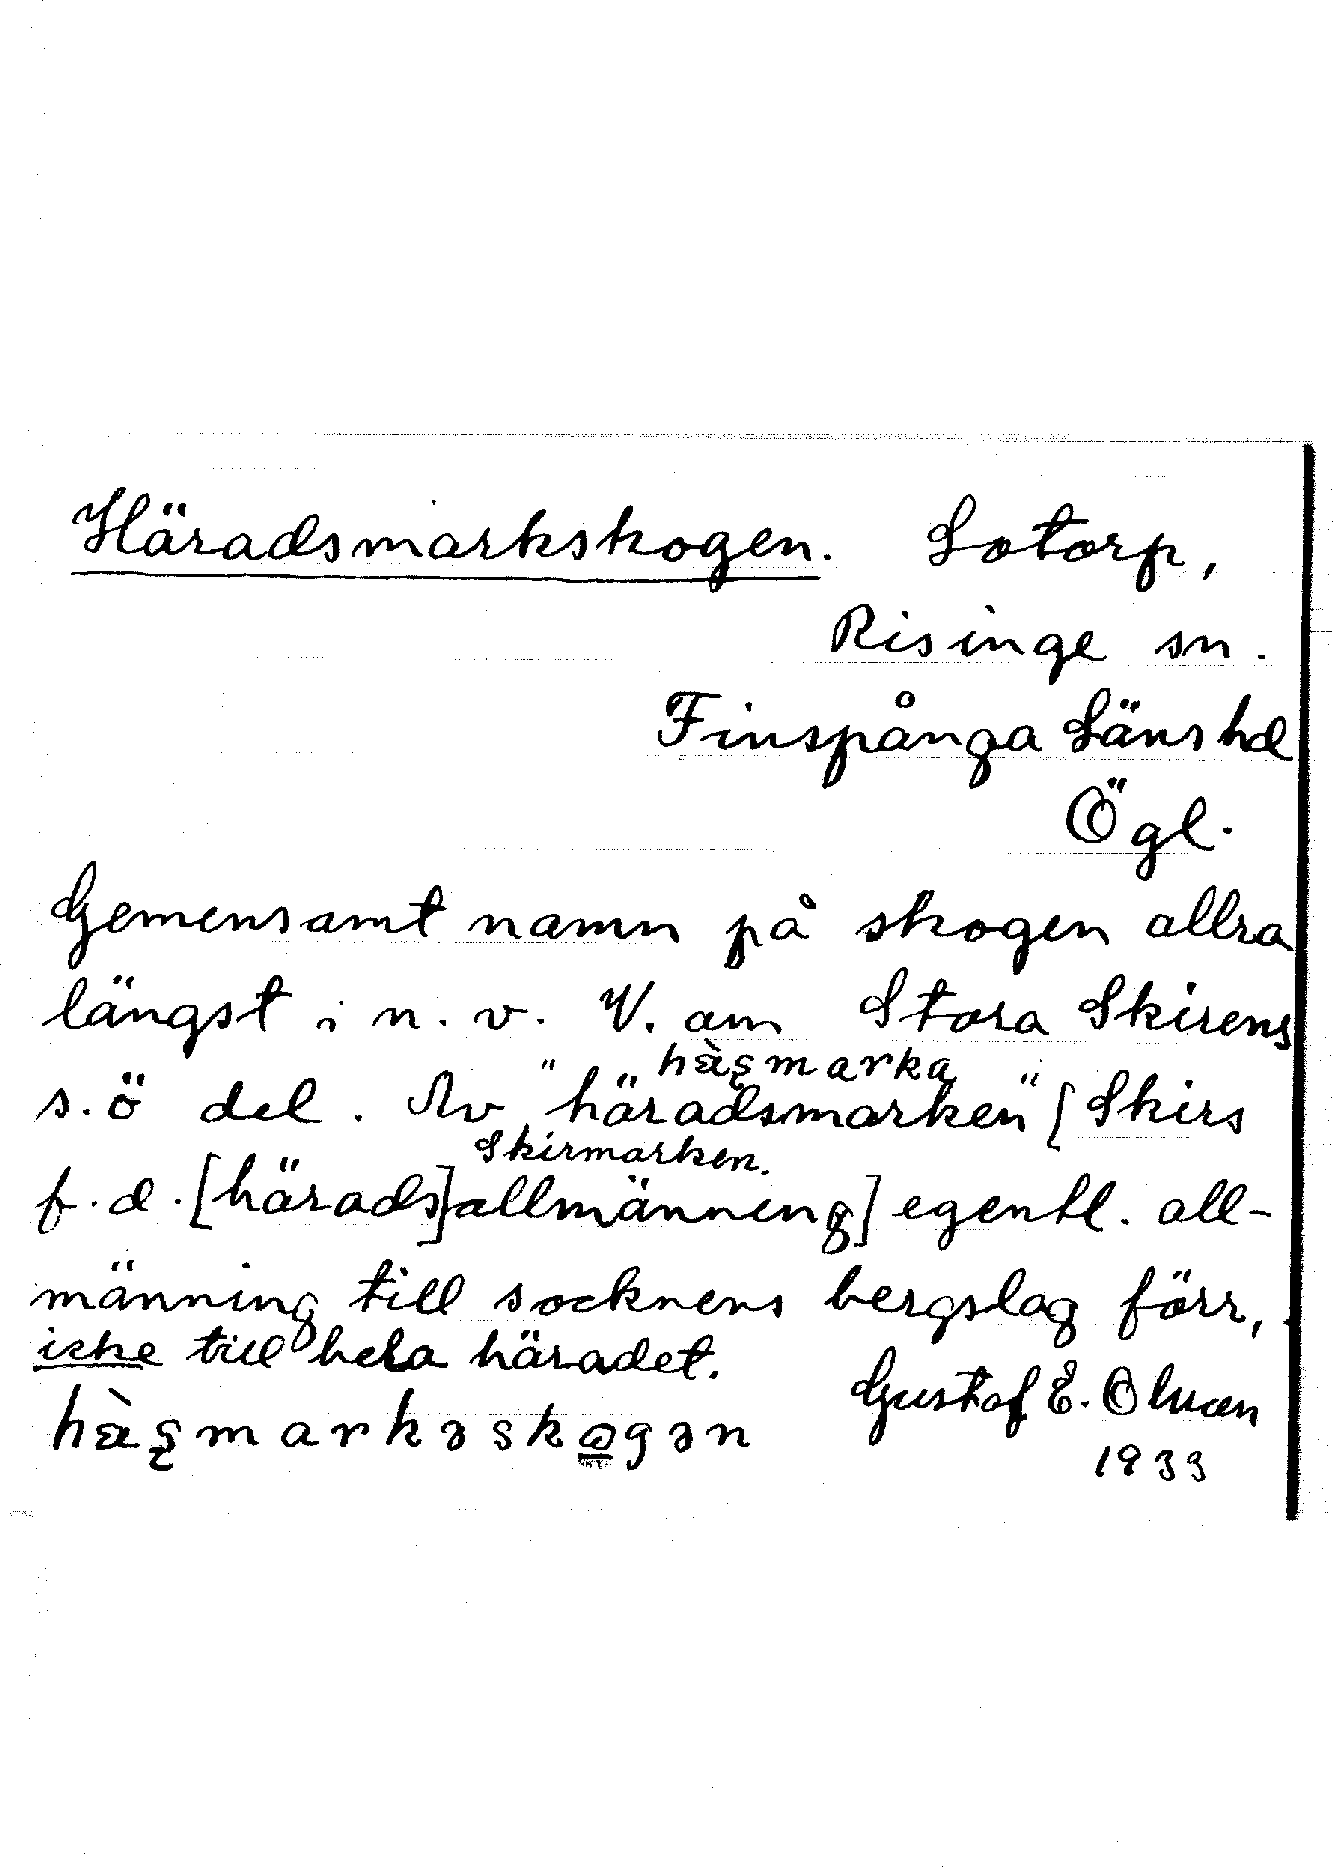 Häradsmarkskogen. Lotorp,
Risinge sn.
Finspånga Läns hd
Ögl.
Gemensamt namn på skogen allra
längst i n. v. V. om Stora Skirens
hàʂmarka
s. ö del. Av "häradsmarken" [Skirs
Skirmarken.
f. d. [härads]allmänning] egentl. all-
männing till socknens bergslag förr,
icke till hela häradet.
Gustaf E. Olsson
hàʂmarkəskogən
1933